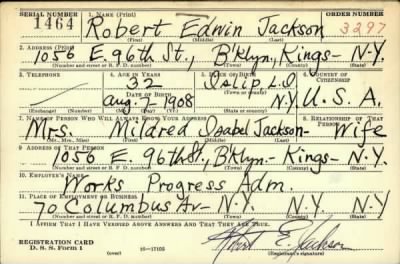 SERIAL NUMBER 1. NAME (Print) ORDER NUMBER
1464 Robert Edwin Jackson 3297
(First) (Middle) (Last)
2. ADDRESS (Print)
1056 E. 96th St., B'klyn., Kings- N.Y.
(Number and street or R. F. D. number) (Town) (County) (State)
3. TELEPHONE 4. AGE IN YEARS 5. PLACE OF BIRTH 6. COUNTRY OF CITIZENSHIP
32 ISLIP, L.I.
DATE OF BIRTH (Town or county)
Aug. 1908 N.Y. U.S.A.
(Exchange) (Number) (Mo.) (Day) (Yr.) (State or country)
7. NAME OF PERSON WHO WILL ALWAYS KNOW YOUR ADDRESS 8. RELATIONSHIP OF THAT PERSON
Mrs. Mildred Isabel Jackson- Wife
(Mr., Mrs., Miss) (First) (Middle) (Last)
9. ADDRESS OF THAT PERSON
1056 E. 96th St., B'klyn.- Kings- N.Y.
(Number and street or R. F. D. number) (Town) (County) (State)
10. EMPLOYER'S NAME
Works Progress Adm.
11. PLACE OF EMPLOYMENT OR BUSINESS
70 Columbus Av- N.Y. N.Y. N.Y.
(Number and street or R. F. D. number) (Town) (County) (State)
I AFFIRM THAT I HAVE VERIFIED ABOVE ANSWERS AND THAT THEY ARE TRUE.
REGISTRATION CARD
D. S. S. Form 1 (over) 16-17105 Robert E. Jackson
(Registrant's signature)